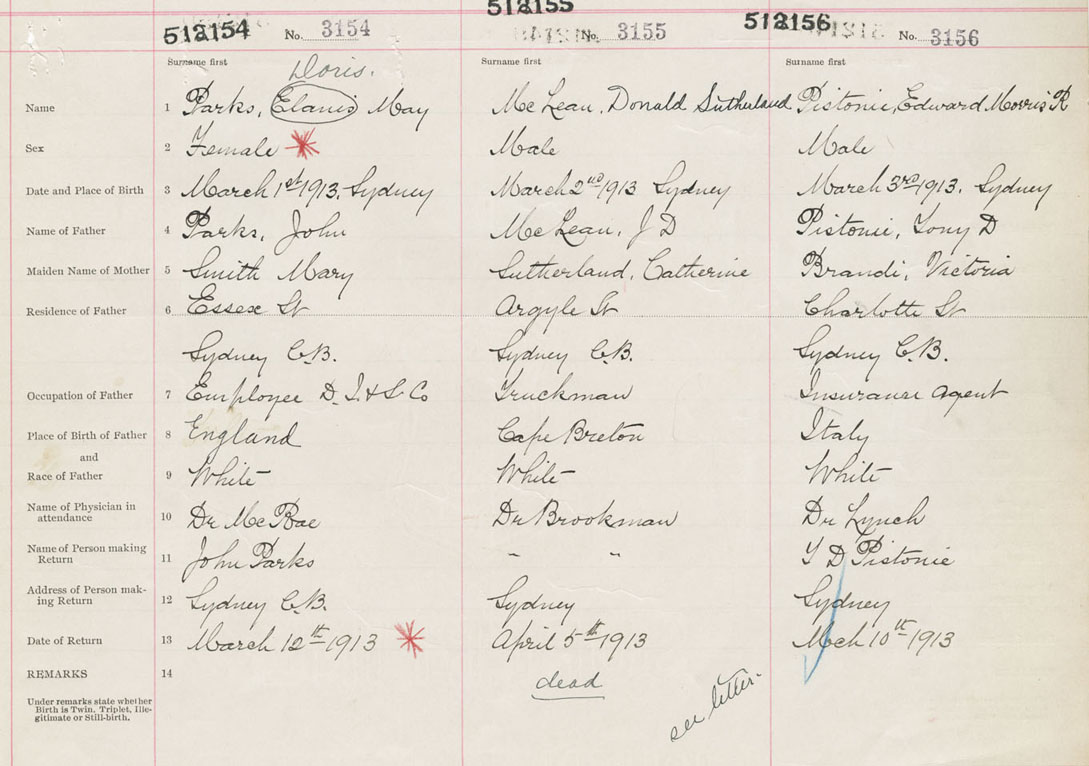 512154 No. 3154 512155 No. 3155 512156 No. 3156
Surname first Surname first Surname first
Doris.
Name 1 Parks, Elanis May Mc Lean, Donald Sutherland Pistonie, Edward Morris R
Sex 2 Female Male Male
Date and Place of Birth 3 March 1st 1913. Sydney March 2nd 1913 Sydney March 3rd 1913. Sydney
Name of Father 4 Parks, John Mc Lean, J D Pistonie, Tony D
Maiden Name of Mother 5 Smith Mary Sutherland, Catherine Brandi, Victoria
Residence of Father 6 Essex St Argyle St Charlotte St
Sydney C.B. Sydney C.B. Sydney C.B.
Occupation of Father 7 Employee D. I. & S. Co Truckman Insurance agent
Place of Birth of Father 8 England Cape Breton Italy
and
Race of Father 9 White White White
Name of Physician in
attendance 10 Dr McRae Dr Brookman Dr Lynch
Name of Person making
Return 11 John Parks " " T D Pistonie
Address of Person mak-
ing Return 12 Sydney C.B. Sydney Sydney
Date of Return 13 March 12th 1913 April 5th 1913 Mch 10th 1913
REMARKS 14 dead
see letter.
Under remarks state whether
Birth is Twin, Triplet, Ille-
gitimate or Still-birth.